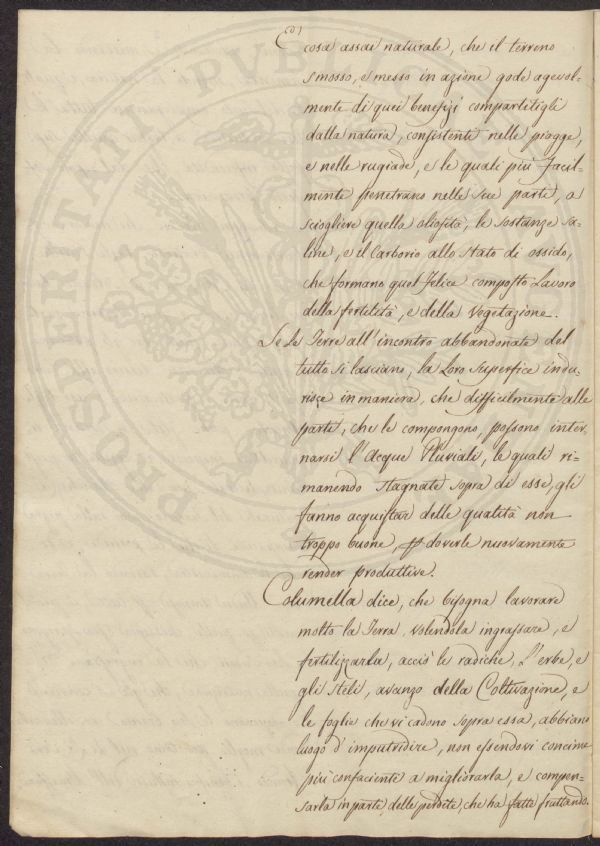 È cosa assai naturale, che il terreno
smosso, e messo in azione gode agevol-
mente di quei benefizj compartitigli
dalla natura, consistenti nelle piogge,
e nelle rugiade, e le quali più facil-
mente penetrano nelle sue parti, a
sciogliere quella oliosità, le sostanze sa-
line, e il Carbonio allo stato di ossido,
che formano quel felice composto lavoro
della fertilità, e della vegetazione.
Se le Terre all'incontro abbandonate del
tutto si lasciano, la loro superfice indu-
risce in maniera, che difficilmente alle
parti, che le compongono, possono inter-
narsi l'Acque Pluviali, le quali ri-
manendo stagnate sopra di esse, gli
fanno acquistar delle qualità non
troppo buone, p doverle nuovamente
render produttive.
Columella dice, che bisogna lavorare
molto la Terra, volendola ingrassare, e
fertilizzarla, acciò le radiche, l'erbe, e
gli steli, avanzo della Coltivazione, e
le foglie che vi cadono sopra essa, abbiano
luogo d'imputridire, non essendovi concime
più confaciente a migliorarla, e compen-
sarla in parte, delle perdite, che ha fatte fruttando.
PROSPERITATI PUBLICAE